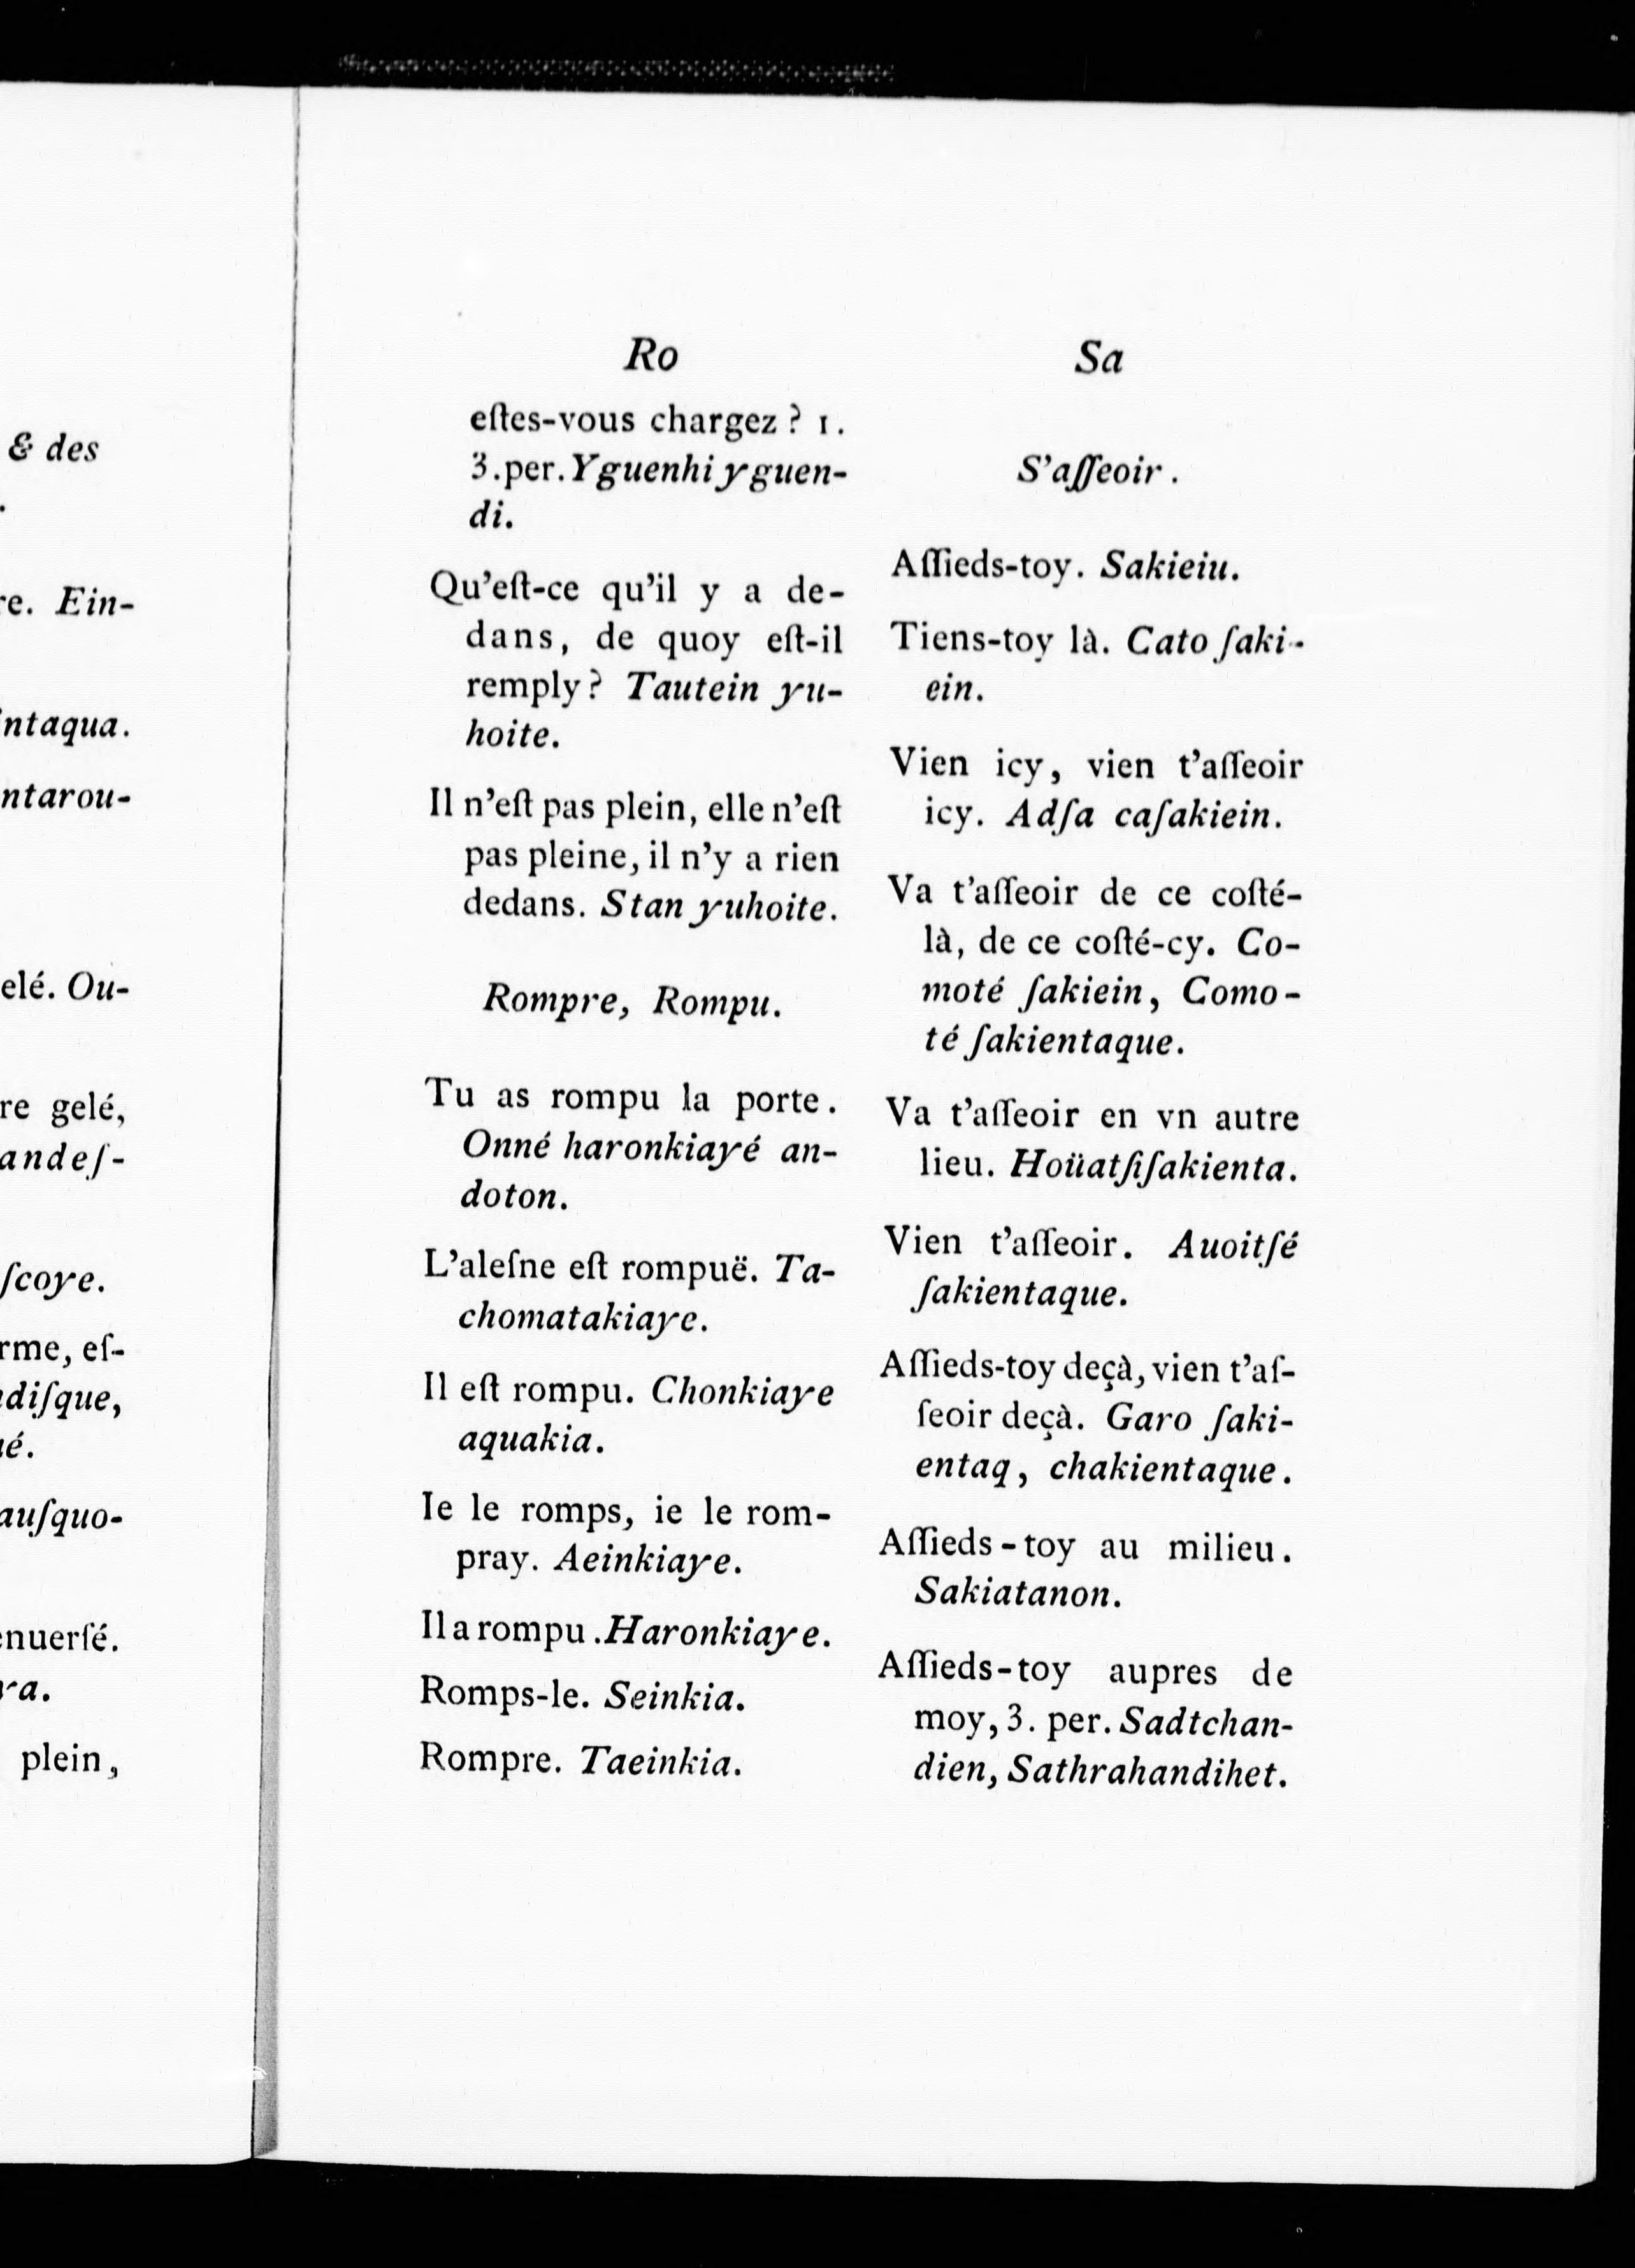 & des
.
re. Ein-
ntaqua.
ntarou-
elé. Ou-
re gelé,
andeſ-
ſcoye.
rme, eſ-
diſque,
é.
auſquo-
nuerſé.
ra.
plein,
Ro
eſtes-vous chargez ? 1.
3.per. Yguenhi yguen-
di.
Qu'eſt-ce qu'il y a de-
dans, de quoy eſt-il
remply ? Tautein yu-
hoite.
Il n'eſt pas plein, elle n'eſt
pas pleine, il n'y a rien
dedans. Stan yuhoite.
Rompre, Rompu.
Tu as rompu la porte.
Onné haronkiayé an-
doton.
L'aleſne eſt rompuë. Ta-
chomatakiaye.
Il eſt rompu. Chonkiaye
aquakia.
Ie le romps, ie le rom-
pray. Aeinkiaye.
Il a rompu. Haronkiaye.
Romps-le. Seinkia.
Rompre. Taeinkia.
Sa
S'aſſeoir.
Aſſieds-toy. Sakieiu.
Tiens-toy là. Cato ſaki-
ein.
Vien icy, vien t'aſſeoir
icy. Adſa caſakiein.
Va t'aſſeoir de ce coſté-
là, de ce coſté-cy. Co-
moté ſakiein, Como-
té ſakientaque.
Va t'aſſeoir en vn autre
lieu. Hoüatſiſakienta.
Vien t'aſſeoir. Auoitſé
ſakientaque.
Aſſieds-toy deçà, vien t'aſ-
ſeoir deçà. Garo ſaki-
entaq, chakientaque.
Aſſieds-toy au milieu.
Sakiatanon.
Aſſieds-toy aupres de
moy, 3. per. Sadtchan-
dien, Sathrahandihet.